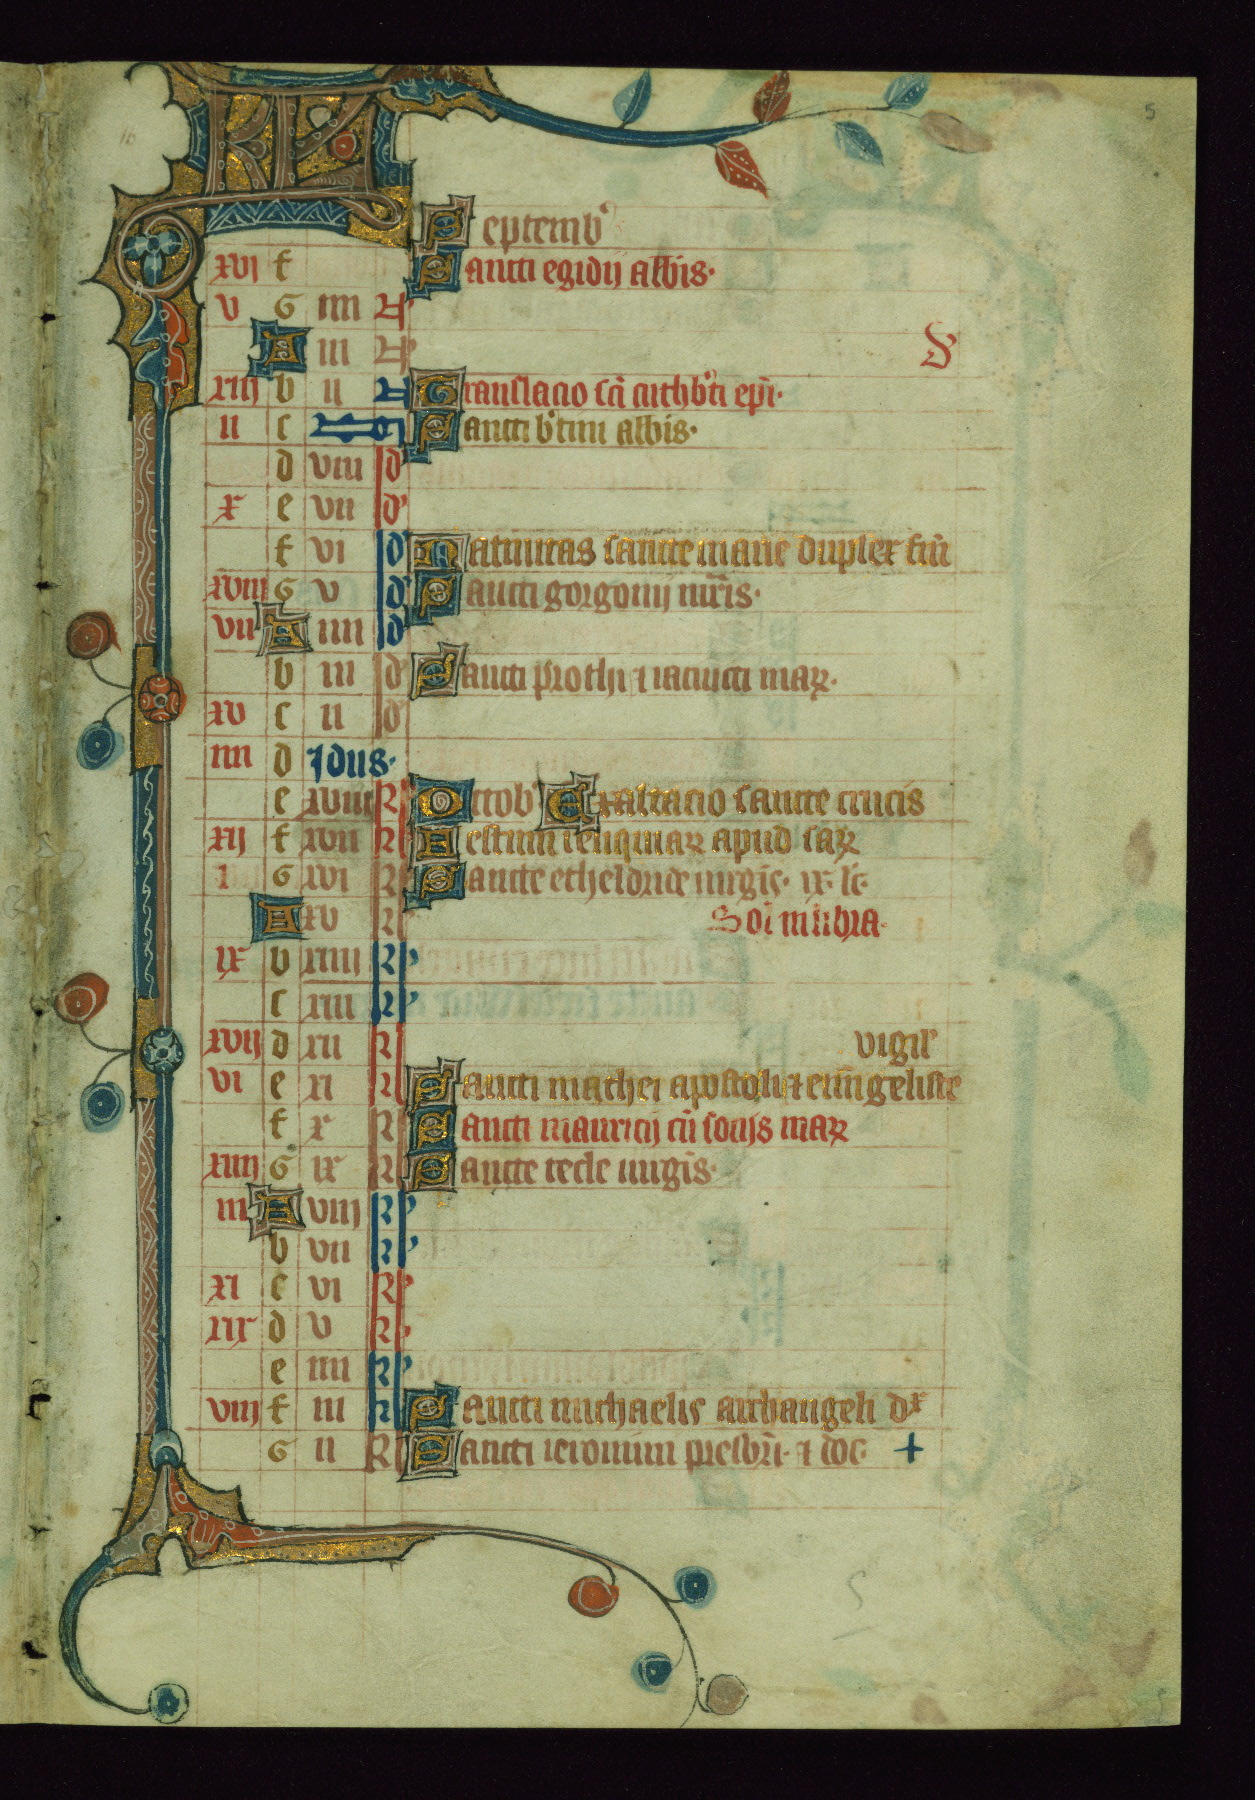 5
16
KL Septemb'
xvi f Sancti egidii abb̄is.
v G iiii N'
A iii N' D
xiii b ii N Translacio sc̄i cuthb'ti ep̄i.
ii c N̄s Sancti b'tini abb̄is.
d viii Id'
x e vii Id'
f vi Id' Natiuitas sancte marie duplex fm̄
xviii G v Id' Sancti gorgonii mr̄is.
vii A iiii Id'
b iii Id' Sanctī prothi ⁊ iacincti marꝝ.
xv c ii Id'
iiii d Idus.
e xviii Kl Octob' Exaltacio sancte crucis
xii f xvii Kl Festum reliquiarꝝ apud sarꝝ
i G xvi Kl Sancte etheldride uirgīs. ix. lc̄.
A xv Kl Sol in libra.
ix b xiiii Kl'
c xiii Kl'
xvii d xii Kl vigil'
vi e xi Kl Sancti mathei apostoli ⁊ euāngeliste
f x Kl Sancti mauricii cū sociis marꝝ
xiiii G ix Kl Sancte tecle uirgīs.
iii A viii Kl'
b vii Kl'
xi c vi Kl'
xix d v Kl'
e iiii Kl'
viii f iii Kl Sancti michaelis archangeli dx
G ii Kl Sancti ieronimi presbr̄i. ⁊ doc. +
5